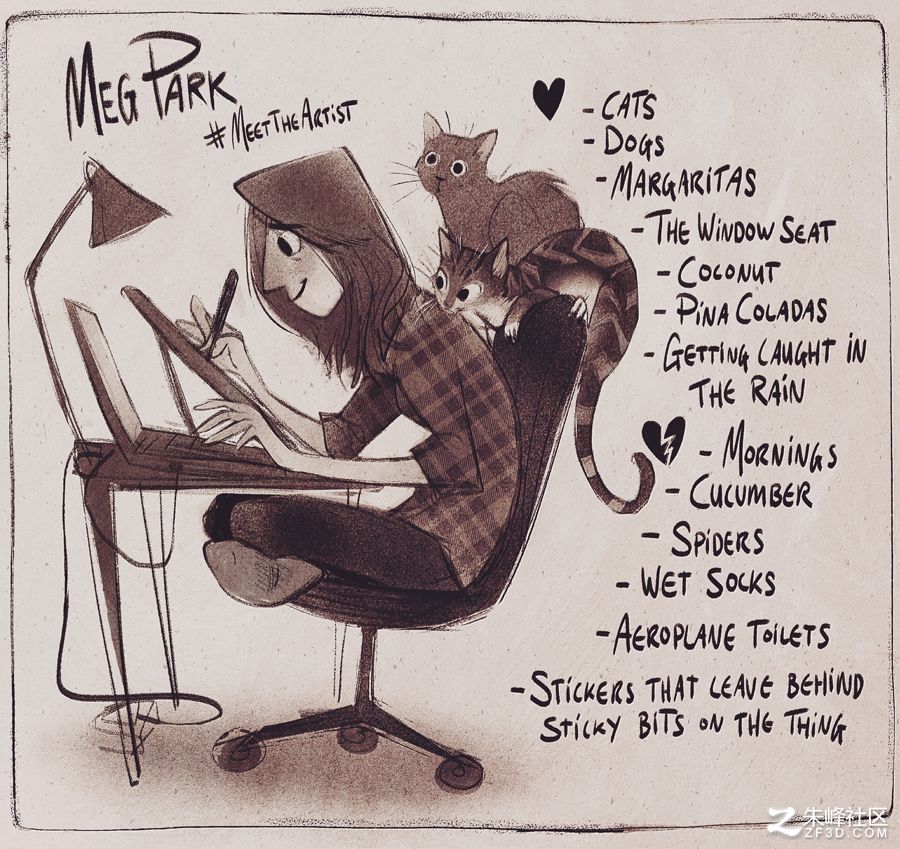 MEG PARK
#MEETTHEARTIST
- CATS
- DOGS
- MARGARITAS
- THE WINDOW SEAT
- COCONUT
- PINA COLADAS
- GETTING CAUGHT IN
THE RAIN
- MORNINGS
- CUCUMBER
- SPIDERS
- WET SOCKS
- AEROPLANE TOILETS
- STICKERS THAT LEAVE BEHIND
STICKY BITS ON THE THING
朱峰社区
ZF3D.COM